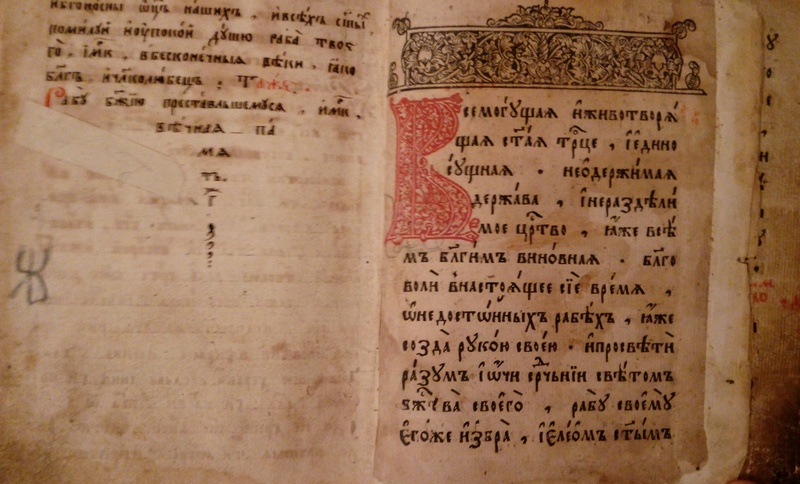 и҆бг҃оносны ѻ҆ц҃ъ нашихъ . и҆всѣхъ ст҃ыⷯ
помилуй и҆ꙋпокой дꙋшꙋ раба твое
го . и҆мⷬ҇к . вбесконечныѧ вѣки . ꙗ҆ко
бл҃гъ и҆чл҃колюбецъ . Таже .
Рабꙋ бж҃їю преставльшемꙋсѧ . и҆мⷬ҇к .
вѣчнаѧ па
мѧ
ть .
г҃
Всемогꙋщаѧ и҆животворѧ́
щаѧ ст҃а́ѧ трⷪ҇це , і҆е҆дино
сꙋщнаѧ . неѡ҆держи́маѧ
держа́ва , і҆нераздѣли́
мое црⷭ҇тво , ꙗ҆́же всѣ̑
мъ бл҃ги́мъ вино́внаѧ . бл҃го
волѝ внастоѧ́щее сїѐ вре́мѧ ,
ѡ҆недосто́йныхъ рабѣ́хъ , ꙗ҆́же
созда̀ рꙋко́ю свое́ю . и҆просвѣтѝ
ра́зꙋмъ і҆ѻ҆́чи срⷣчьнїи свѣ́томъ
бжⷭ҇тва̀ своего̀ , рабꙋ̀ своемꙋ̀
Е҆го́же и҆збра̀ , і҆є҆ле́ѡмъ ст҃ы́мъ